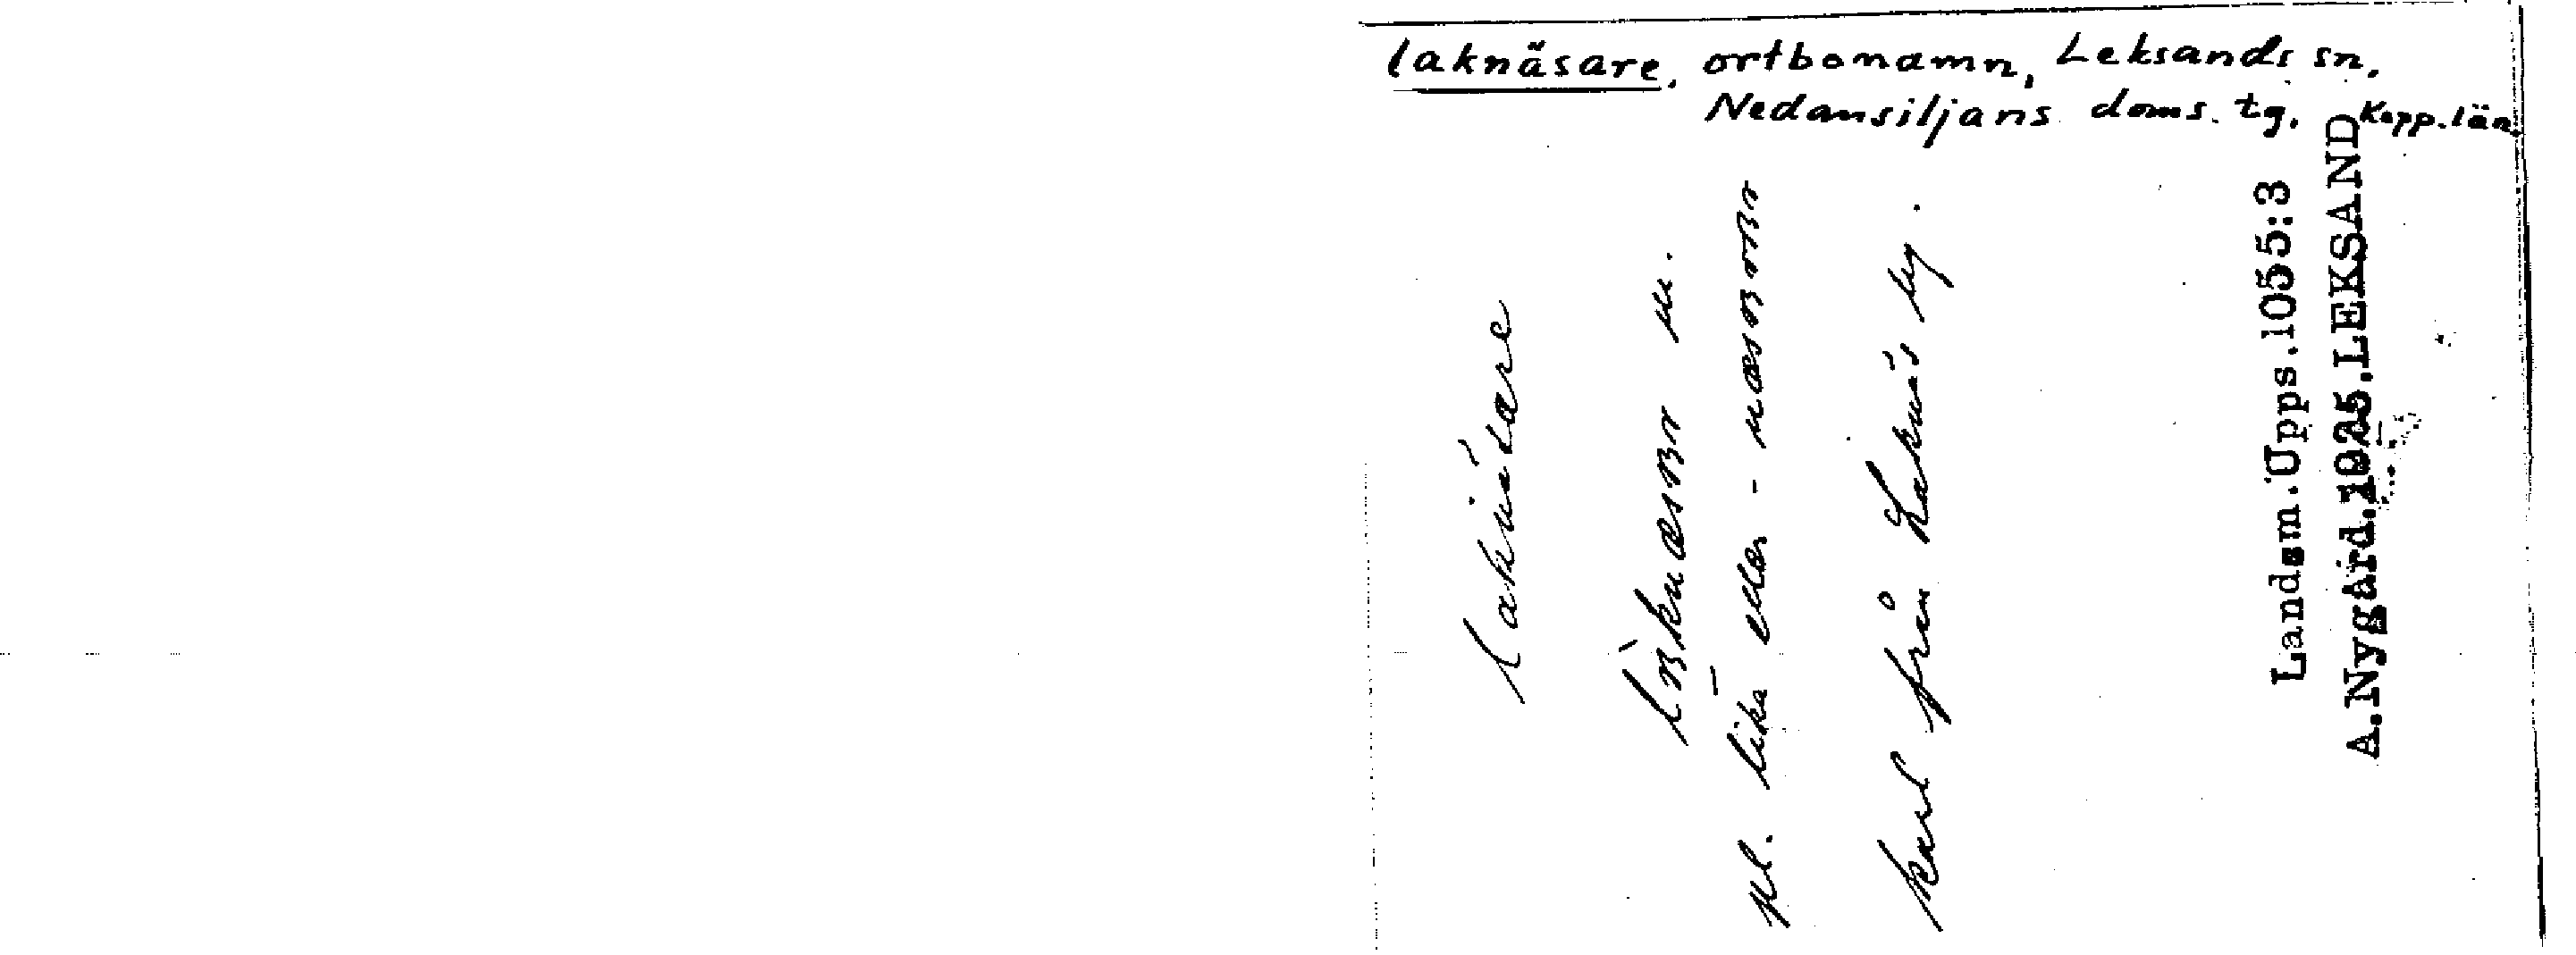 laknäsare, ortbonamn, Leksands sn,
Nedansiljans doms. tg. Kopp. län.
laknäsare
m.
pl. lika eller -
karl från Laknäs by.
Landsm. Upps. 1055:3
A. Nygård. 1925. LEKSAND